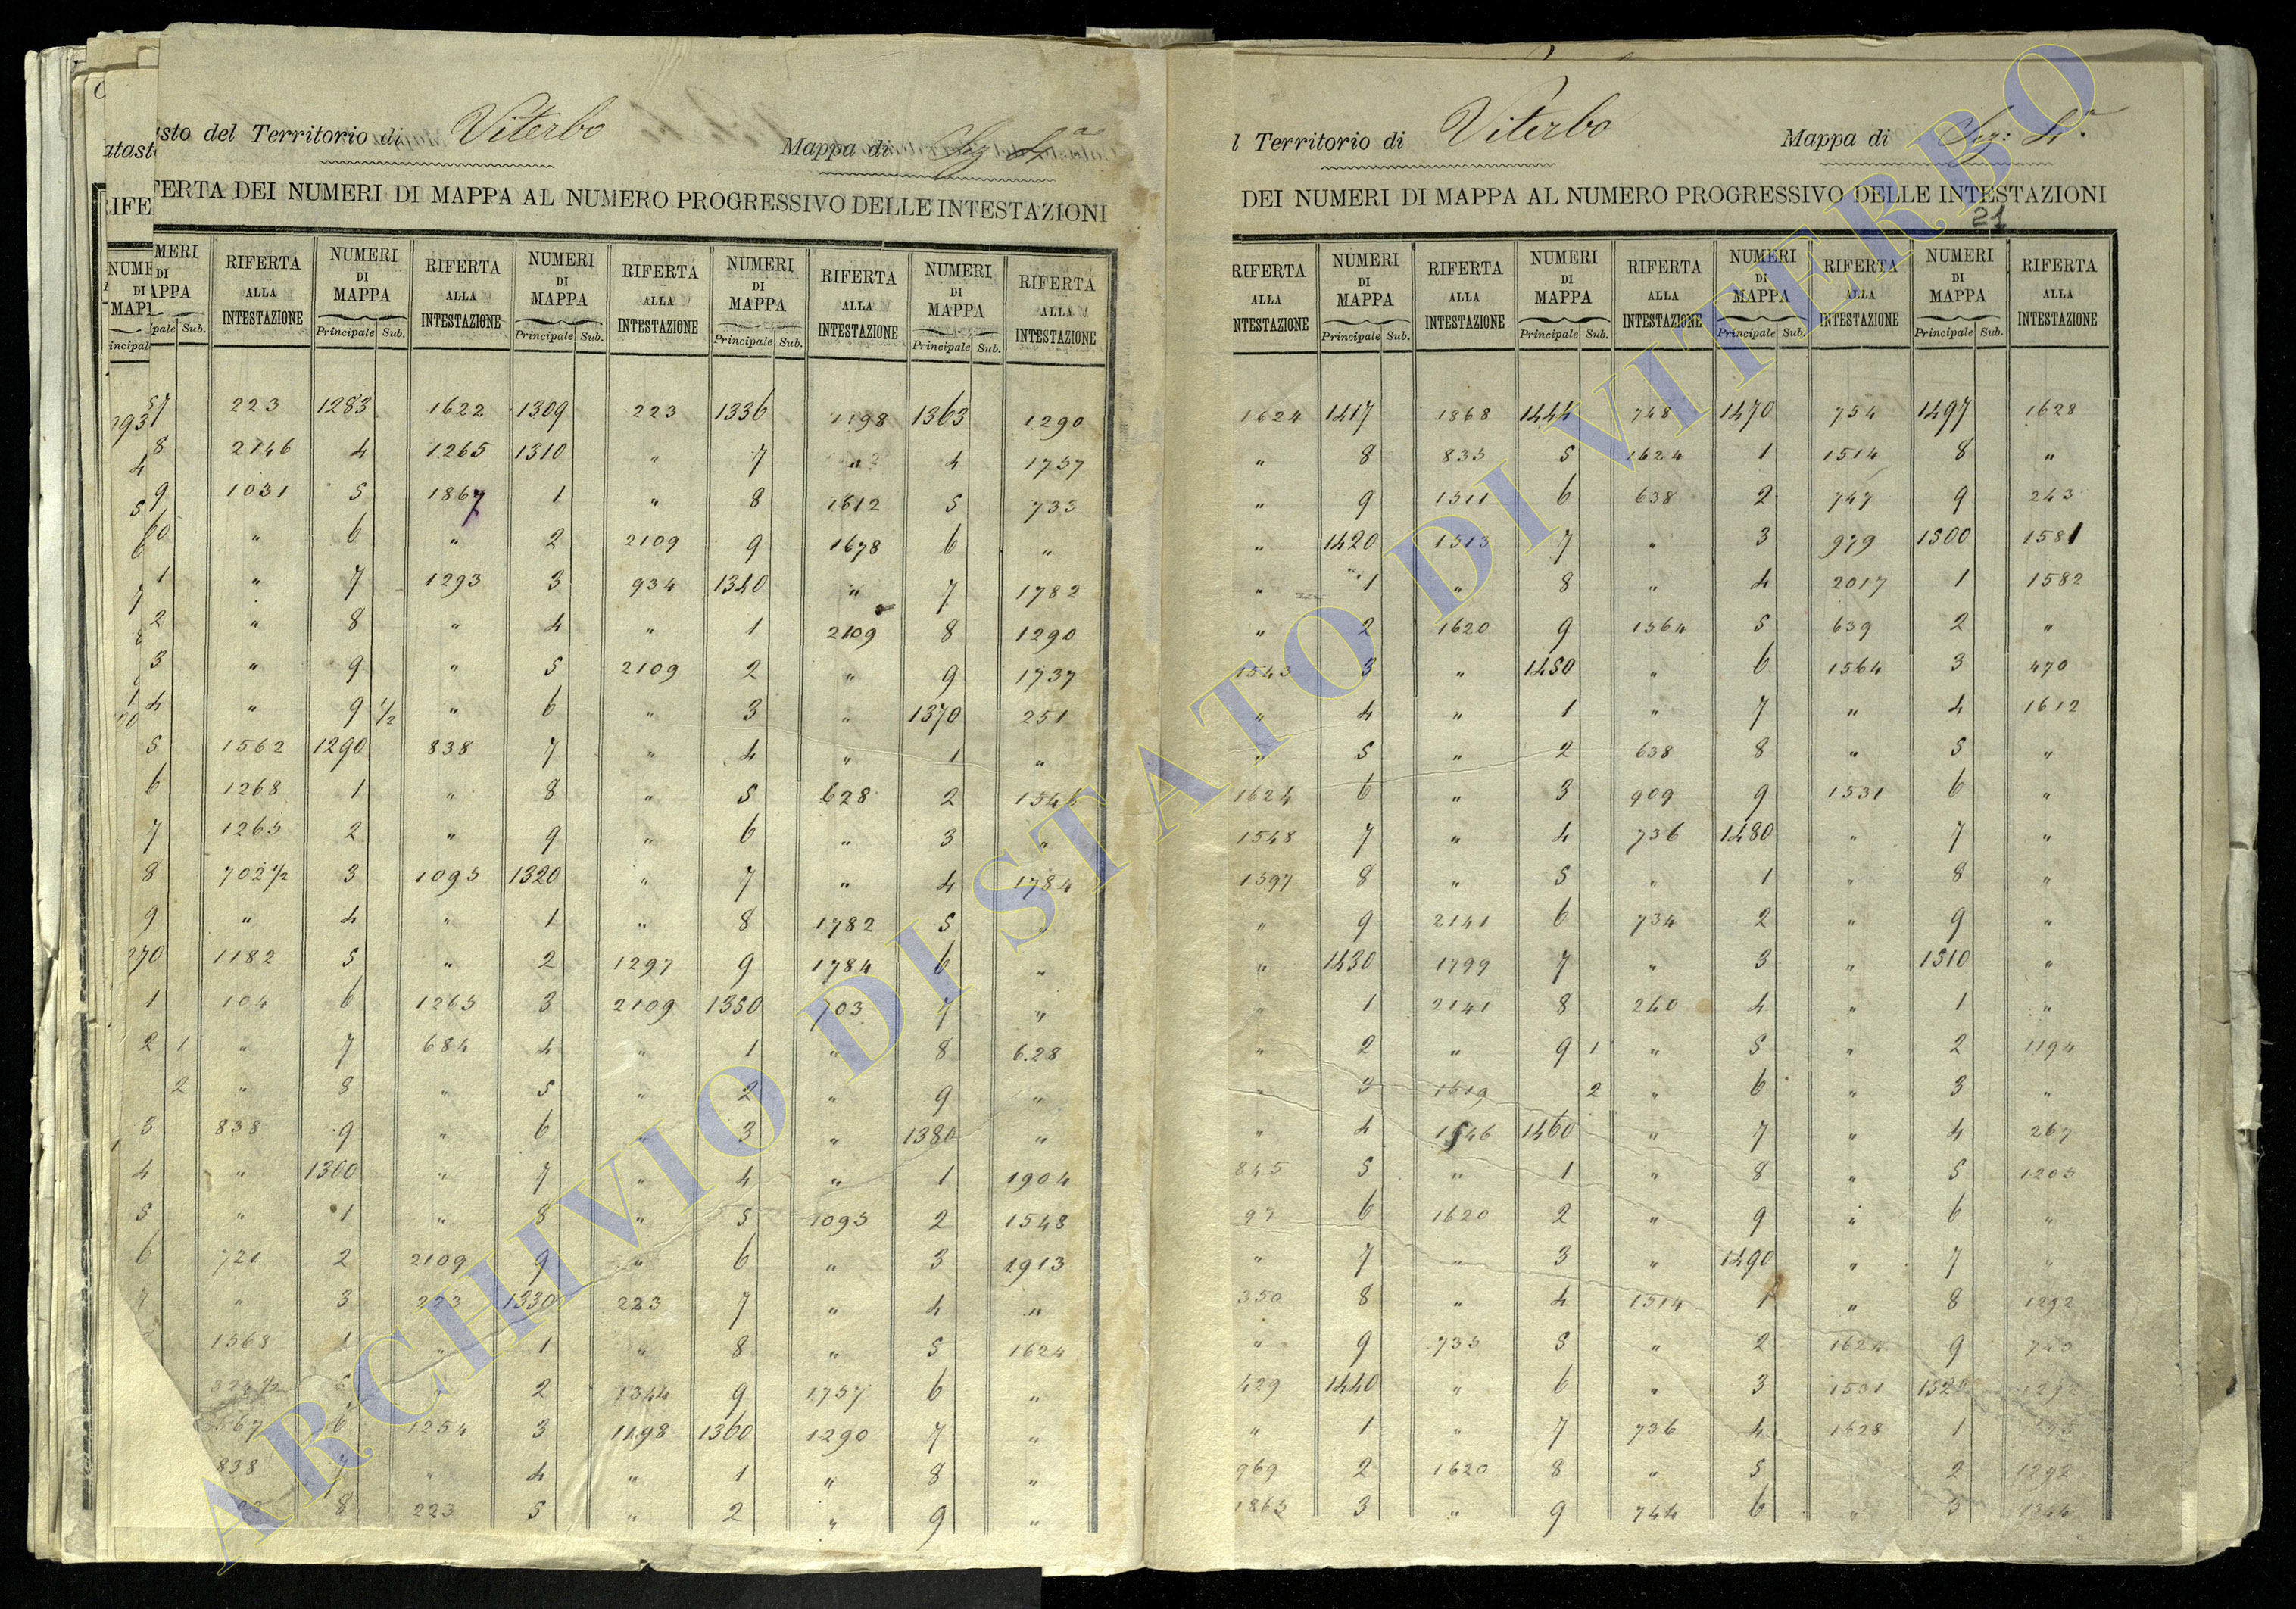 sto del Territorio di Viterbo Mappa di Sez 4ª
FERTA DEI NUMERI DI MAPPA AL NUMERO PROGRESSIVO DELLE INTESTAZIONI
MERI DI APPA RIFERTA ALLA INTESTAZIONE NUMERI DI MAPPA RIFERTA ALLA INTESTAZIONE NUMERI DI MAPPA RIFERTA ALLA INTESTAZIONE NUMERI DI MAPPA RIFERTA ALLA INTESTAZIONE NUMERI DI MAPPA RIFERTA ALLA INTESTAZIONE
pale Sub. Principale Sub. Principale Sub. Principale Sub. Principale Sub.
57 223 1283 1622 1309 223 1336 1198 1363 1290
8 2146 4 1265 1310 " 7 " 4 1757
9 1031 5 1867 1 " 8 1612 5 733
60 " 6 " 2 2109 9 1678 6 "
1 " 7 1293 3 934 1340 " 7 1782
2 " 8 " 4 " 1 2109 8 1290
3 " 9 " 5 2109 2 " 9 1737
4 " 9 1/2 " 6 " 3 " 1370 251
5 1562 1290 838 7 " 4 " 1 "
6 1268 1 " 8 " 5 628 2
7 1265 2 " 9 " 6 " 3 "
8 702 1/2 3 1095 1320 " 7 " 4 1784
9 " 4 " 1 " 8 1782 5 "
270 1182 5 " 2 1297 9 1784 6 "
1 104 6 1265 3 2109 1350 703 7 "
2 1 " 7 684 4 " 1 " 8 628
2 " 8 " 5 " 2 " 9 "
3 838 9 " 6 " 3 " 1380 "
4 " 1300 " 7 " 4 " 1 1904
5 " 1 " 8 " 5 1095 2 1548
6 721 2 2109 9 " 6 " 3 1913
7 " 3 223 1330 223 7 " 4 "
1568 " 1 " 8 " 5 1624
2 1344 9 1757 6 "
567 6 1254 3 1198 1360 1290 7 "
838 7 " 4 " 1 " 8 "
8 223 5 " 2 " 9 "
l Territorio di Viterbo Mappa di Sez: 4ª
DEI NUMERI DI MAPPA AL NUMERO PROGRESSIVO DELLE INTESTAZIONI
21
RIFERTA ALLA NTESTAZIONE NUMERI DI MAPPA RIFERTA ALLA INTESTAZIONE NUMERI DI MAPPA RIFERTA ALLA INTESTAZIONE NUMERI DI MAPPA RIFERTA ALLA INTESTAZIONE NUMERI DI MAPPA RIFERTA ALLA INTESTAZIONE
Principale Sub. Principale Sub. Principale Sub. Principale Sub.
1624 1417 1868 1444 748 1470 754 1497 1628
" 8 835 5 1624 1 1514 8 "
" 9 1511 6 638 2 747 9 243
" 1420 1513 7 " 3 979 1500 1581
" 1 " 8 " 4 2017 1 1582
" 2 1620 9 1564 5 639 2 "
1543 3 " 1450 " 6 1564 3 470
" 4 " 1 " 7 " 4 1612
" 5 " 2 638 8 " 5 "
1624 6 " 3 909 9 1531 6 "
1548 7 " 4 736 1480 " 7 "
1597 8 " 5 " 1 " 8 "
" 9 2141 6 734 2 " 9 "
" 1430 1799 7 " 3 " 1510 "
" 1 2141 8 240 4 " 1 "
" 2 " 9 1 " 5 " 2 1194
" 3 1619 2 " 6 " 3 "
" 4 1546 1460 " 7 " 4 267
845 5 " 1 " 8 " 5 1205
97 6 1620 2 " 9 " 6 "
" 7 " 3 " 1490 " 7 "
350 8 " 4 1514 1 " 8 1292
" 9 735 5 " 2 1624 9
429 1440 " 6 " 3 1501 1520 1292
" 1 " 7 736 4 1628 1
969 2 1620 8 " 5 2 1292
1863 3 " 9 744 6 " 3 1344
ARCHIVIO DI STATO DI VITERBO